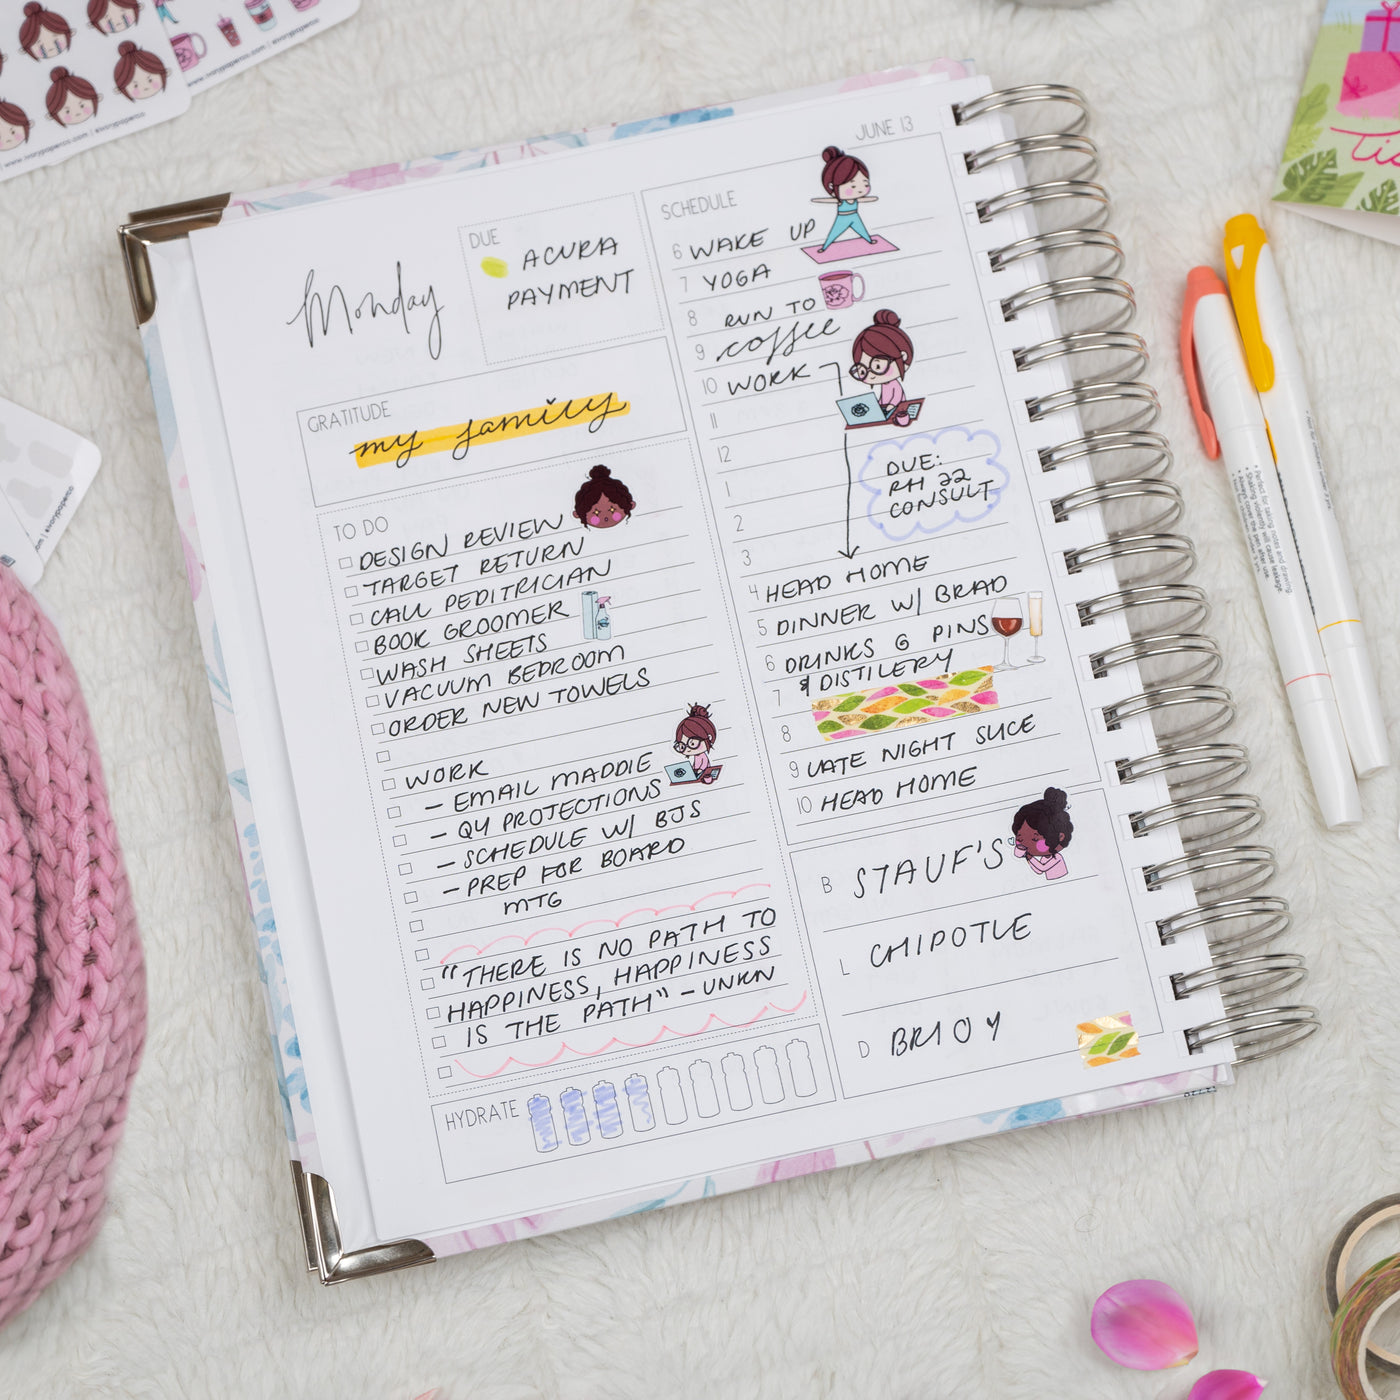 www.ivorypaperco.com | @ivorypaperco
www.ivorypaperco.com | @ivorypaperco
JUNE 13
Monday
DUE
ACURA
PAYMENT
GRATITUDE
my family
TO DO
DESIGN REVIEW
TARGET RETURN
CALL PEDITRICIAN
BOOK GROOMER
WASH SHEETS
VACUUM BEDROOM
ORDER NEW TOWELS
WORK
- EMAIL MADDIE
- Q4 PROJECTIONS
- SCHEDULE W/ BJS
- PREP FOR BOARD
MTG
"THERE IS NO PATH TO
HAPPINESS, HAPPINESS
IS THE PATH" - UNKN
HYDRATE
SCHEDULE
6 WAKE UP
7 YOGA
8 RUN TO
9 coffee
10 WORK
11
12
1
DUE:
RH 22
CONSULT
2
3
4 HEAD HOME
5 DINNER W/ BRAD
6 DRINKS @ PINS
7 & DISTILERY
8
9 LATE NIGHT SLICE
10 HEAD HOME
B STAUF'S
L CHIPOTLE
D BRIOY